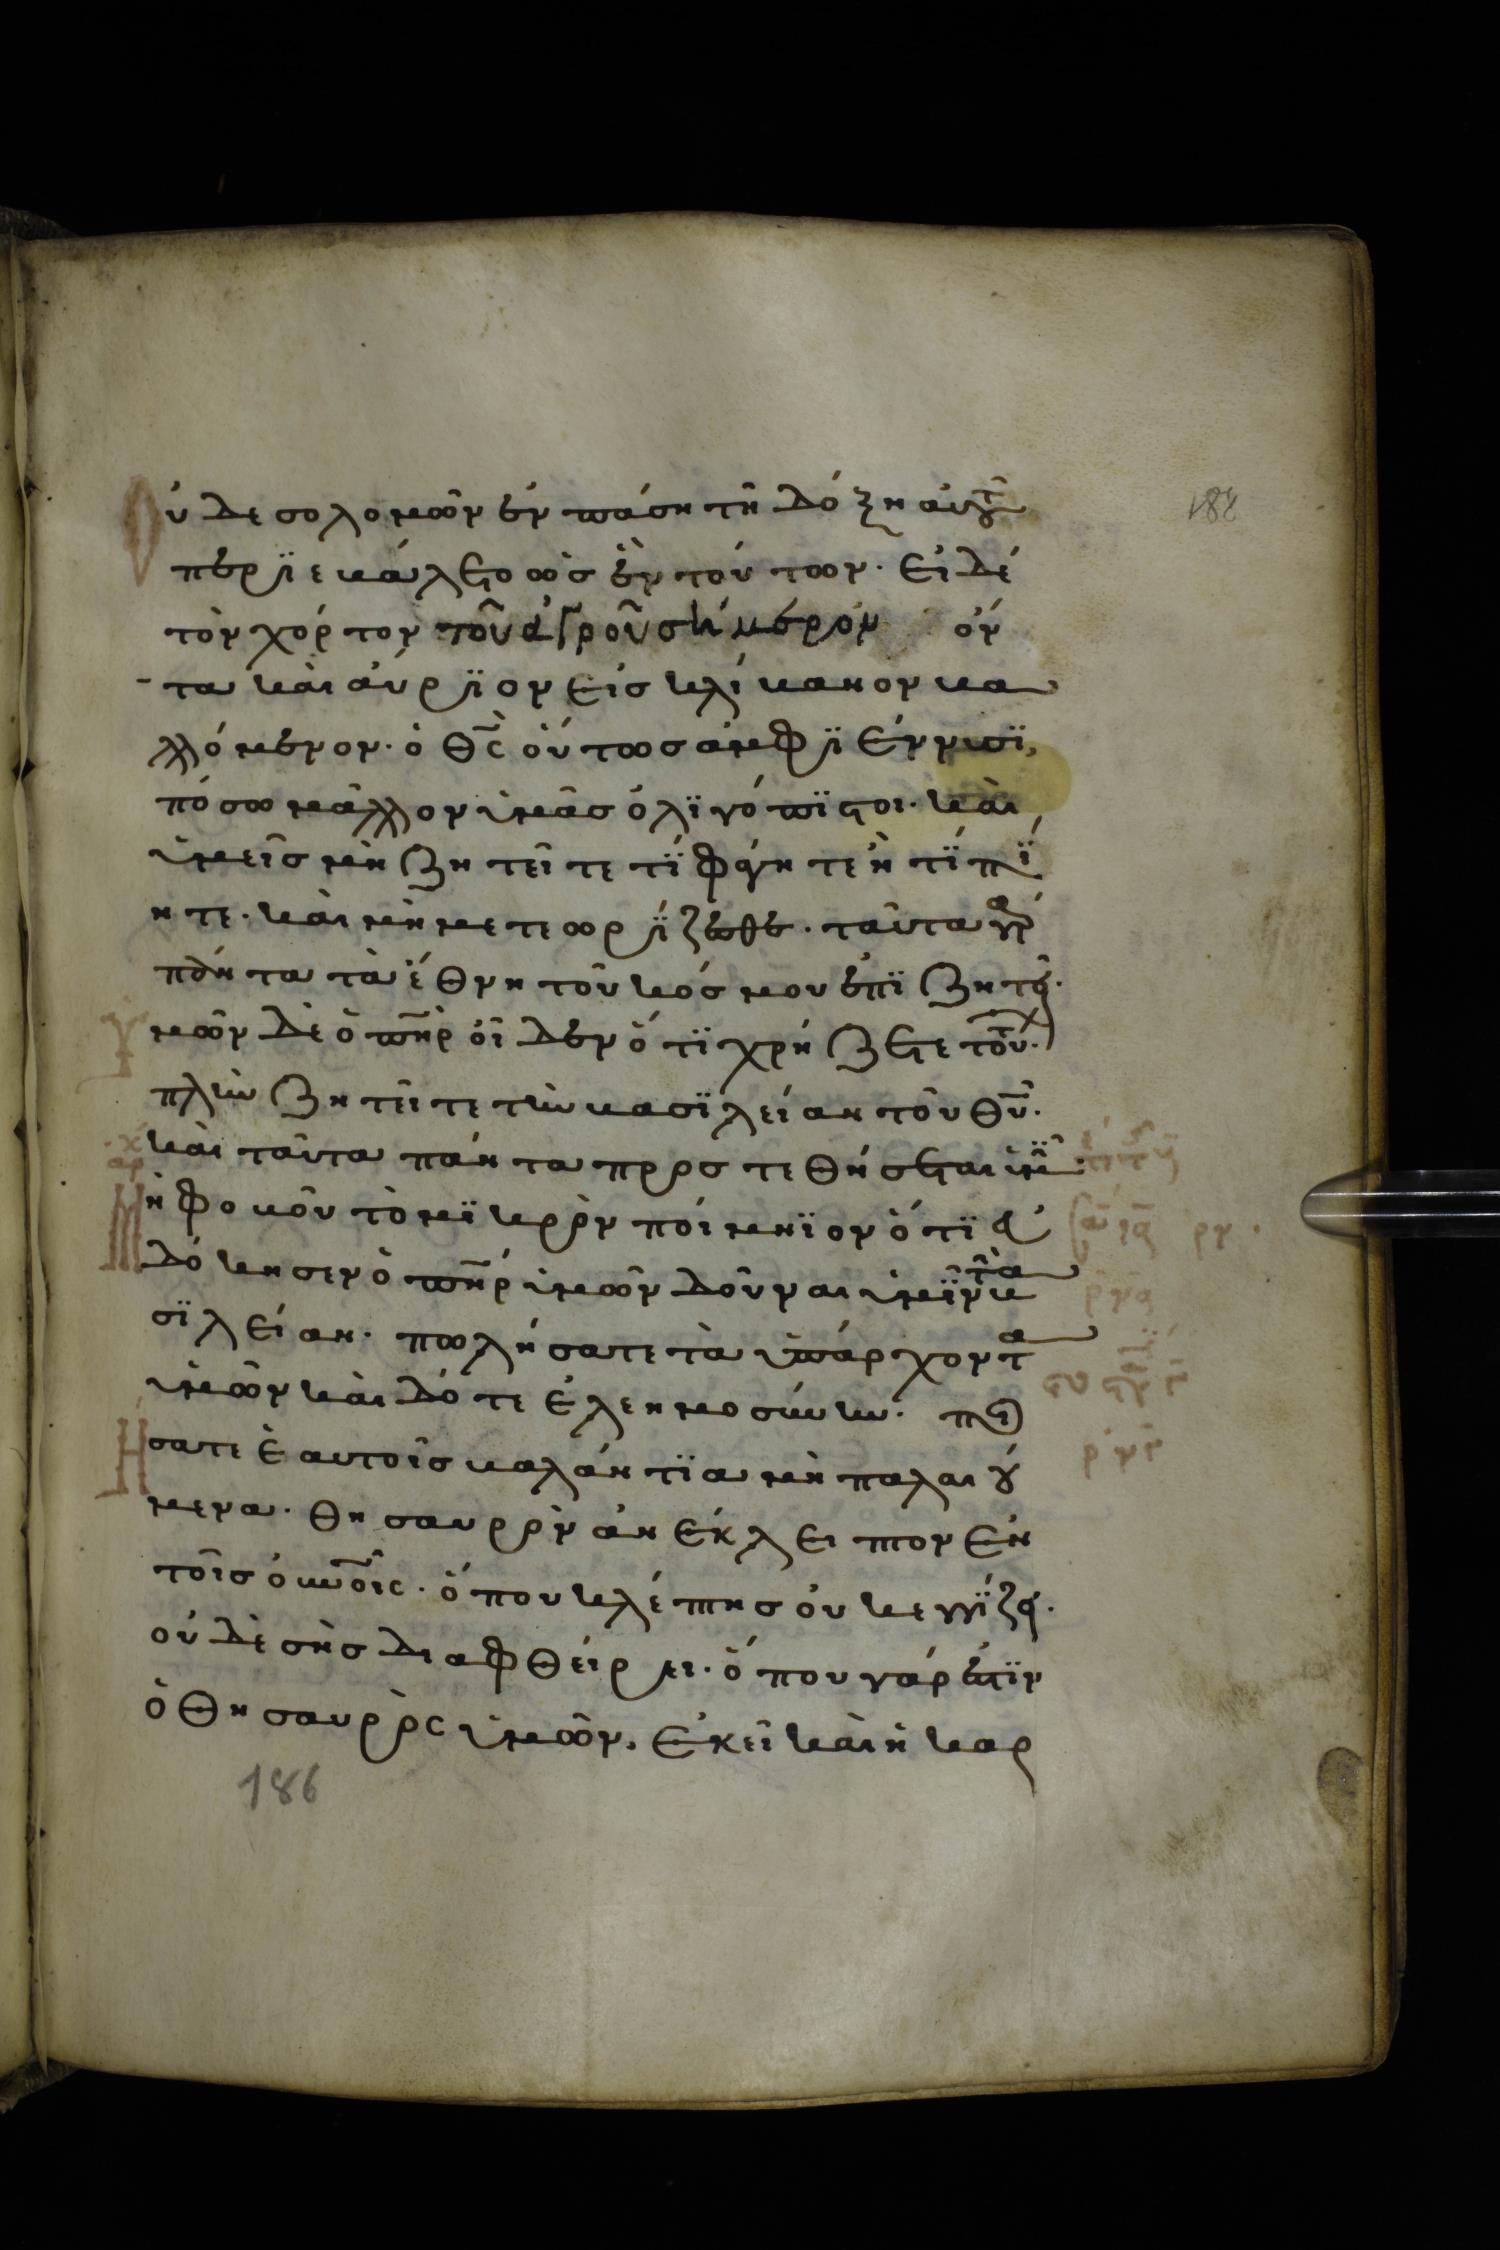 Οὐδὲ σολομῶν ἐν πάση τῆ δόξη αὐτοῦ
περϊεβάλετο ὡς ἓν τούτων. εἰ δέ
τὸν χόρτον τοῦ ἀγροῦ σήμερον ὄν
τα καὶ ἀύρϊον εἰς κλίβανον βα
λλόμενον. ὁ θς̄ οὕτως ἀμφϊέννυσϊ,
πόσω μᾶλλον ὑμᾶσ ὀλϊγόπϊστοι. καὶ
ὑμεῖσ μὴ ζητεῖτε τί φάγητε ἢ τί πί
ητε. καὶ μὴ μετεωρίζεσθε. ταῦτα γὰρ
πάντα τὰ ἔθνη τοῦ κόσμου ἐπϊζητεῖ.
Υμῶν δὲ ὁ πη̄ρ οἶδεν ὅτϊ χρήζετε τούτων.
πλὴν ζητεῖτε τὴν βασϊλείαν τοῦ θῡ.
καὶ ταῦτα πάντα προστεθήσεται ὑμῖν.
Μὴ φοβοῦ τὸ μϊκρὸν ποίμνϊον ὅτϊ εὐ
δόκησεν ὁ πη̄ρ ὑμῶν δοῦναι ὑμῖν τὴν βα
σϊλείαν. πωλήσατε τὰ ὑπάρχοντα
ὑμῶν καὶ δότε ἐλεημοσύνην. ποιή
σατε ἑαυτοῖσ βαλάντϊα μὴ παλαιού
μενα. θησαυρὸν ἀνέκλειπτον ἐν
τοῖσ οὐνοῖς. ὅπου κλέπτησ οὐκ εγγίζει.
οὐδὲ σὴσ διαφθείρει. ὅπου γάρ ἐστϊν
ὁ θησαυρὸς ὑμῶν. ἐκεῖ καὶ ἡ καρ
186